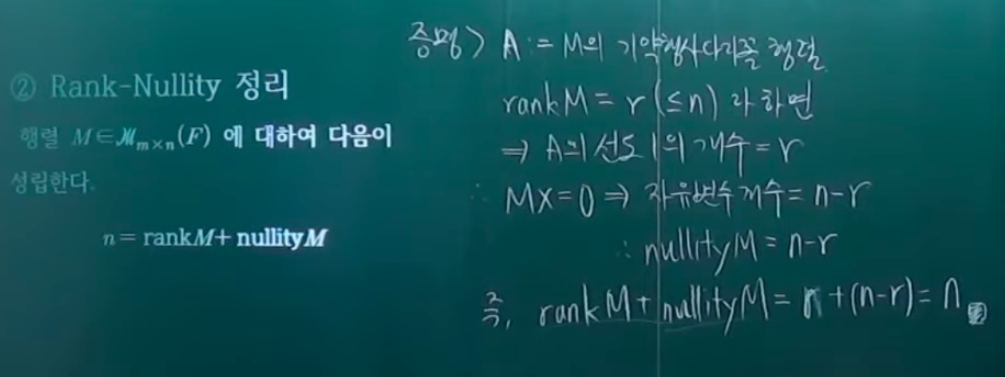 ② Rank-Nullity 정리
행렬 M∈𝓜ₘₓₙ(F) 에 대하여 다음이
성립한다.
n = rankM + nullityM
증명> A := M의 기약행사다리꼴 행렬
rankM = r (≤n) 라 하면
⇒ A의 선도 1의 개수 = r
∴ MX=0 ⇒ 자유변수 개수 = n-r
∴ nullityM = n-r
즉, rankM + nullityM = r + (n-r) = n